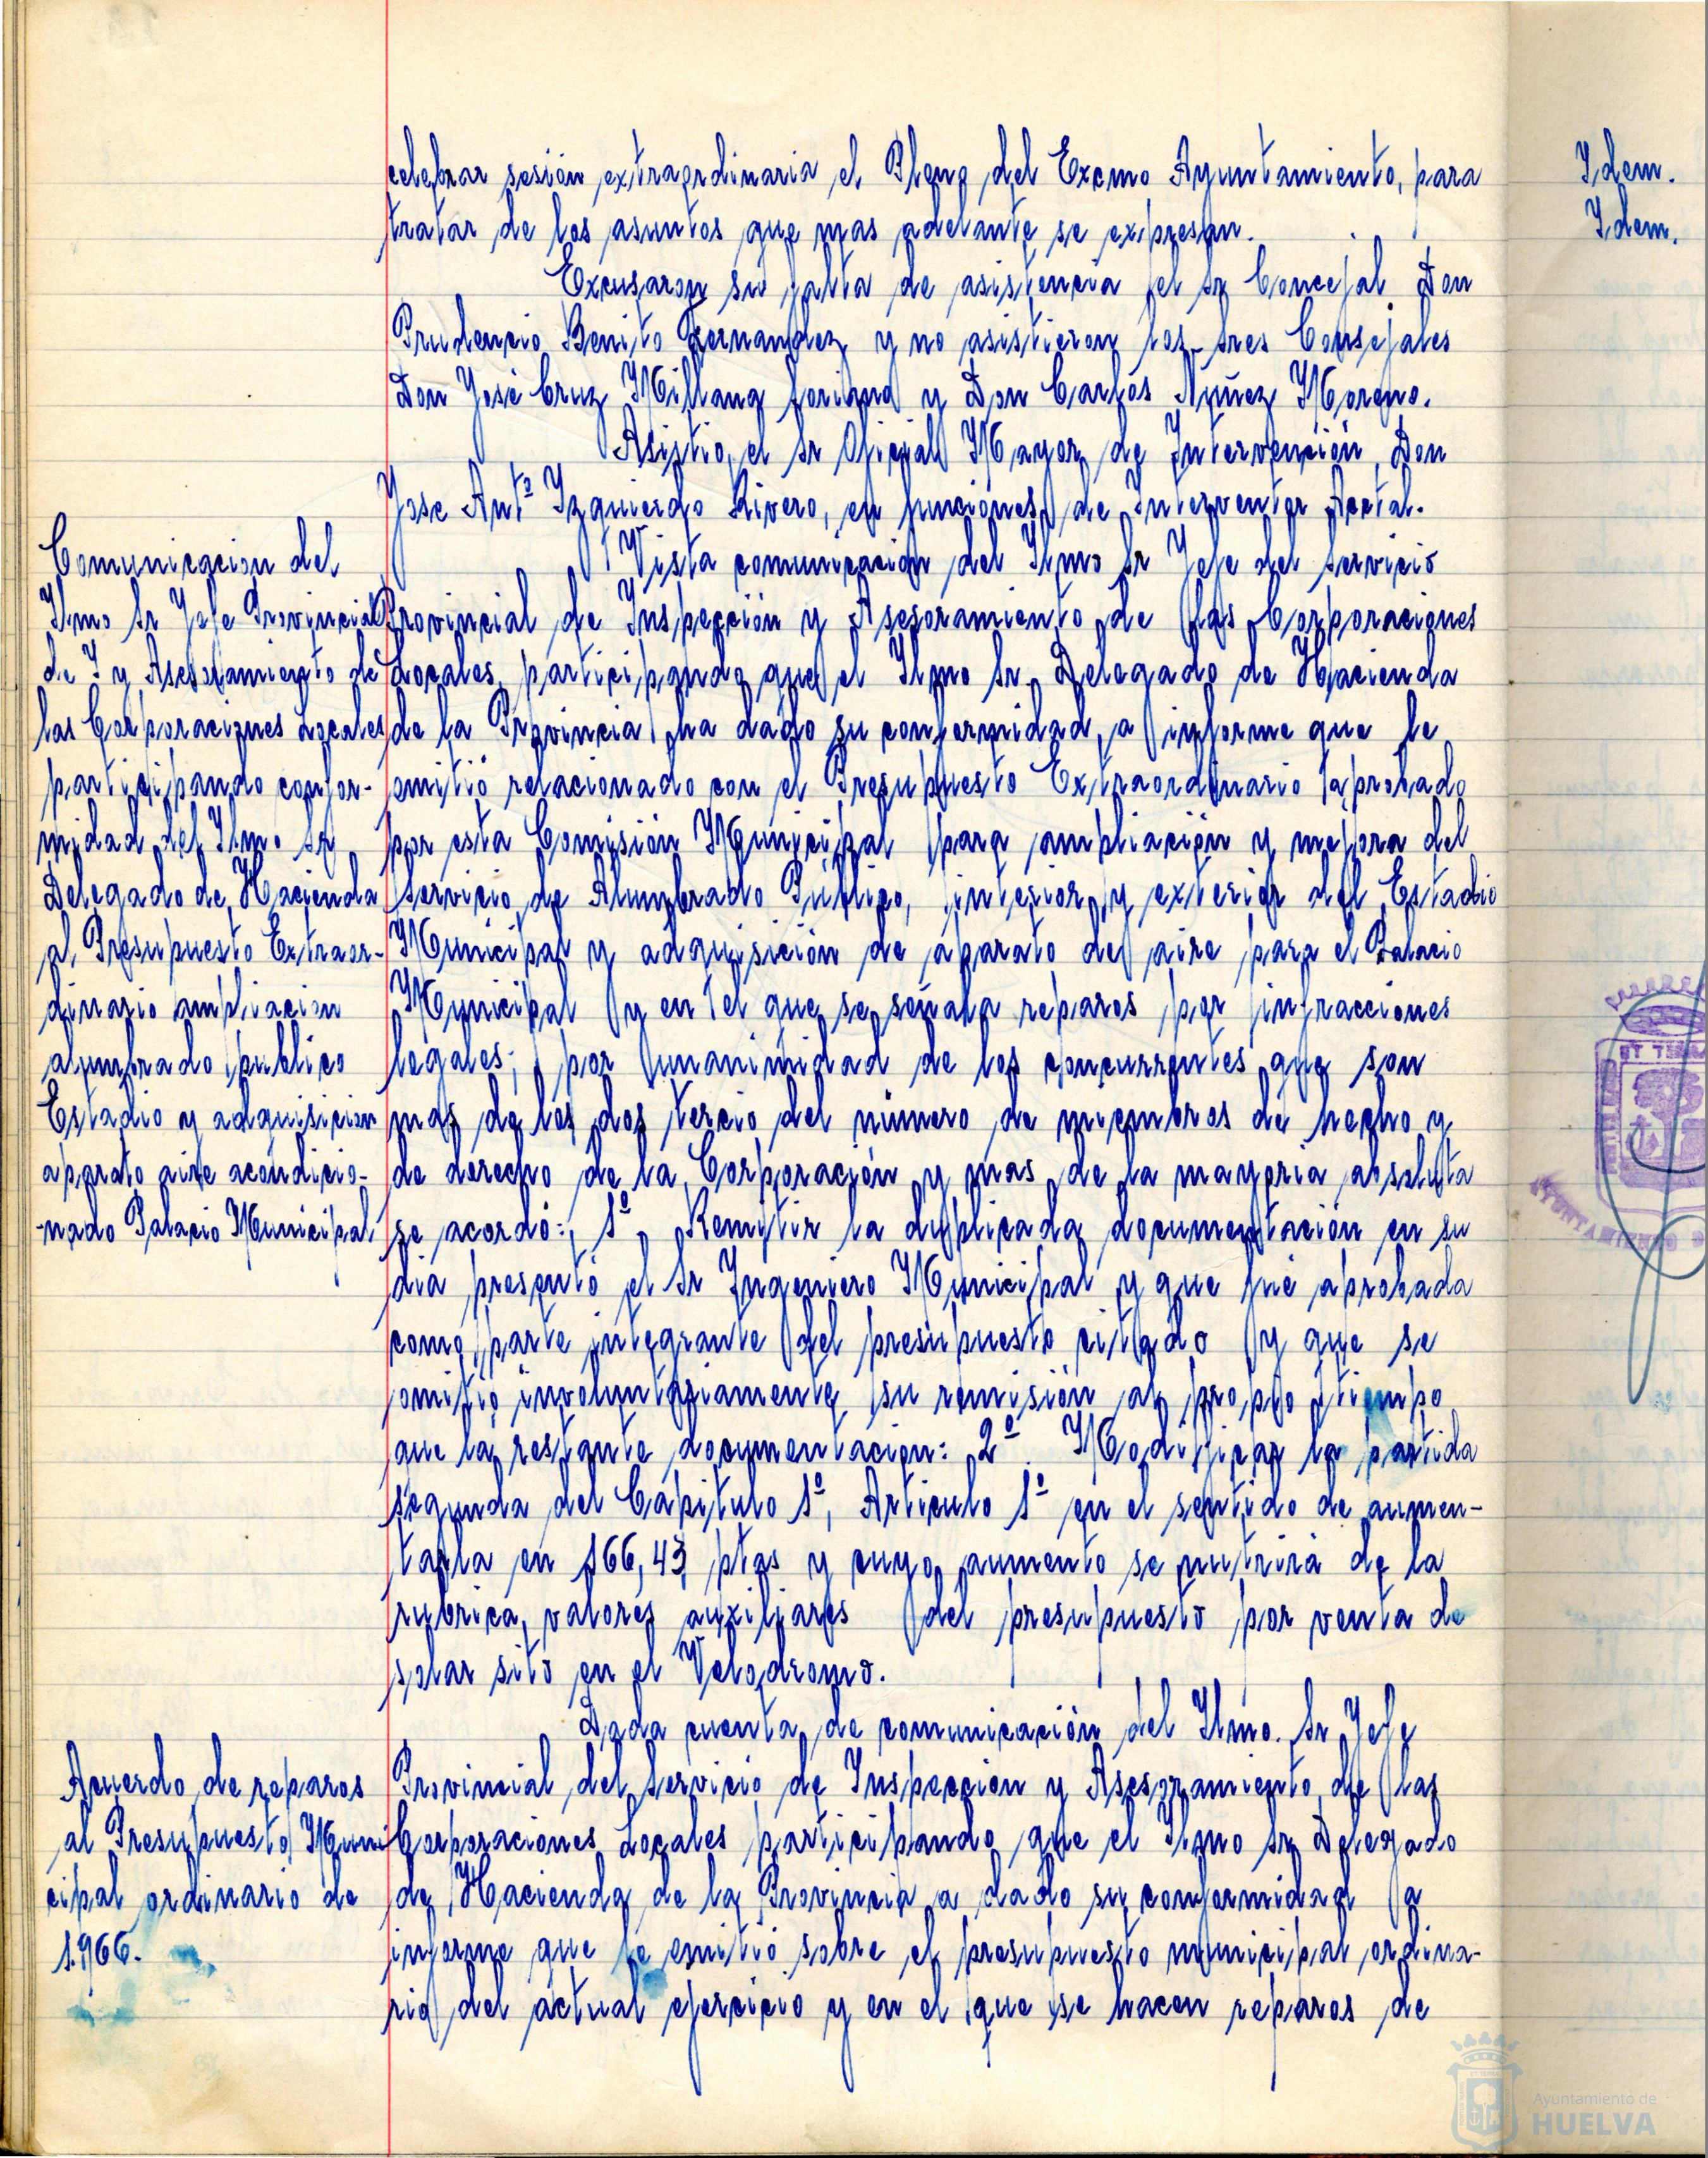 celebrar sesión extraordinaria el Pleno del Excmo Ayuntamiento, para
tratar de los asuntos que mas adelante se expresan.
Excusaron su falta de asistencia el Sr Concejal Don
Prudencio Benito Fernandez y no asistieron los Sres Consejales
Don José Cruz Millana Soriano y Don Carlos Nuñez Moreno.
Asistio el Sr Oficial Mayor de Intervención, Don
Jose Antº Izquierdo Rivero, en funciones de Interventor Acctal.
Comunicacion del
Ilmo Sr Jefe Provincial
de I y Asesoramiento de
las Corporaciones Locales
participando confor-
midad del Ilmo Sr
Delegado de Hacienda
al Presupuesto Extraor-
dinario ampliacion
alumbrado publico
Estadio y adquisicion
aparato aire acondicio-
nado Palacio Municipal
Vista comunicación del Ilmo Sr Jefe del Servicio
Provincial de Inspección y Asesoramiento de las Corporaciones
Locales, participando que el Ilmo Sr. Delegado de Hacienda
de la Provincia ha dado su conformidad, a informe que le
emitió relacionado con el Presupuesto Extraordinario aprobado
por esta Comisión Municipal para ampliación y mejora del
Servicio de Alumbrado Público, interior y exterior del Estadio
Municipal y adquisición de aparato de aire para el Palacio
Municipal y en el que se señala reparos por infracciones
legales; por unanimidad de los concurrentes que son
mas de los dos tercio del número de miembros de hecho y
de derecho de la Corporación y mas de la mayoria absoluta
se acordó: 1º. Remitir la duplicada documentación en su
dia presentó el Sr Ingeniero Municipal y que fué aprobada
como parte integrante del presupuesto citado y que se
omitió involuntariamente su remisión al propio tiempo
que la restante documentacion: 2º. Modificar la partida
segunda del Capitulo 1º, Articulo 1º en el sentido de aumen-
tarla en 166,43 ptas y cuyo aumento se nutrirá de la
rubrica, valores auxiliares del presupuesto por venta de
solar sito en el Velodromo.
Acuerdo de reparos
al Presupuesto Muni
cipal ordinario de
1.966.
Dada cuenta de comunicación del Ilmo. Sr Jefe
Provincial del Servicio de Inspeccion y Asesoramiento de las
Corporaciones Locales participando que el Ilmo Sr Delegado
de Hacienda de la Provincia a dado su conformidad a
informe que le emitió sobre el presupuesto municipal ordina-
rio del actual ejercicio y en el que se hacen reparos de
Idem.
Idem.
AYUNTAMIENTO
Ayuntamiento de
HUELVA